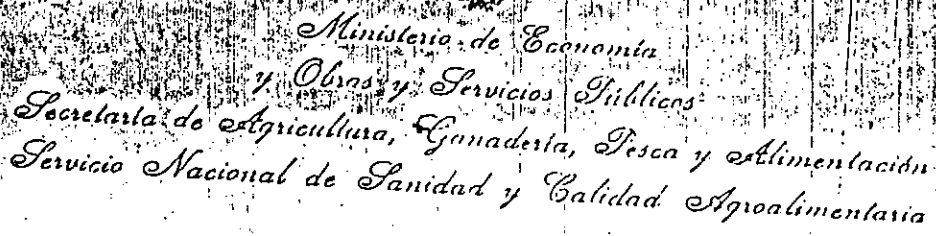 Ministerio de Economía
y Obras y Servicios Públicos
Secretaría de Agricultura, Ganadería, Pesca y Alimentación
Servicio Nacional de Sanidad y Calidad Agroalimentaria